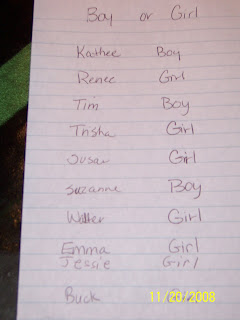 Boy or Girl
Kathee Boy
Renee Girl
Tim Boy
Trisha Girl
Susan Girl
Suzanne Boy
Walter Girl
Emma Girl
Jessie Girl
Buck
11/26/2008